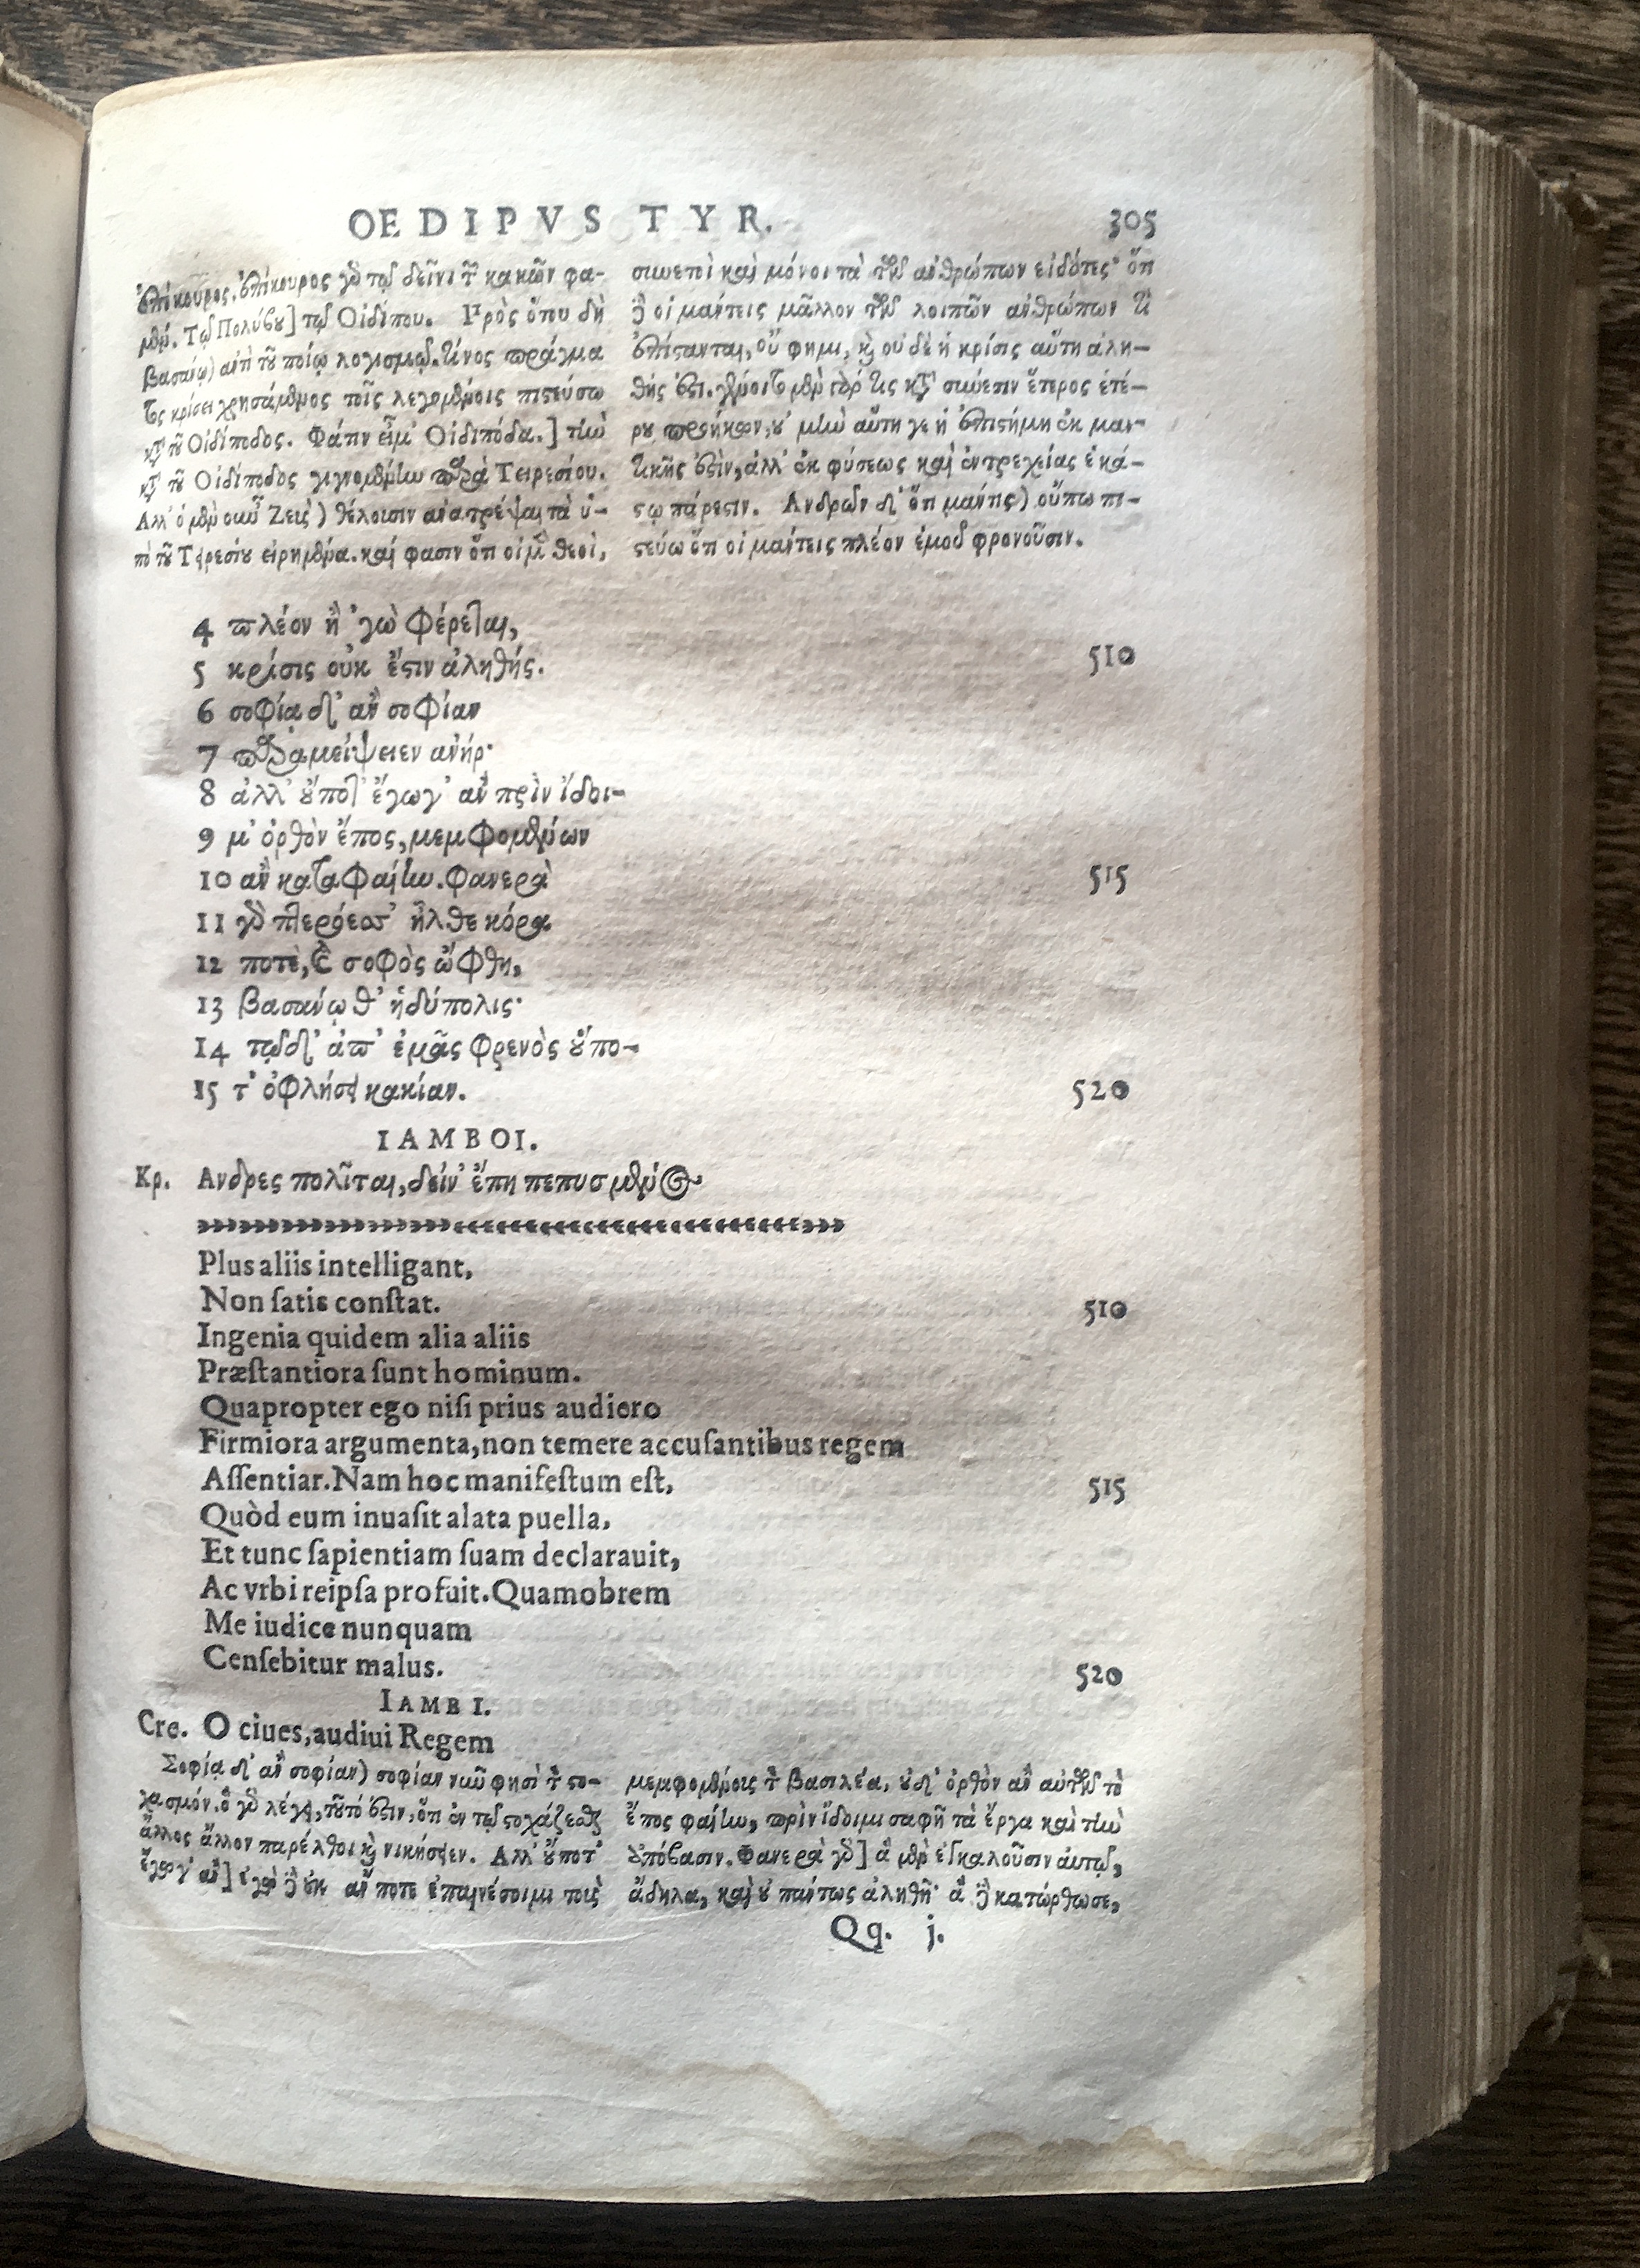 OEDIPVS TYR. 305
ἐπίκουρος. ἐπίκουρος γὸ τῷ δεῖνι τ̃ κακῶν φα-
μϑμ. Τῷ Πολύβου] τῷ Οἰδίπου. Πρὸς ὅπου δὴ
βασάνῳ) ἀντὶ τοῦ ποίῳ λογισμῷ. τίνος πρᾶγμα
τος κρίσει χρησάμενος τοῖς λεγομένοις πιστεύσω
κτ̃ τοῦ Οἰδίποδος. Φάτιν εἶμ' Οἰδιπόδα.] τὴν
κτ̃ τοῦ Οἰδίποδος γιγνομένην παρὰ Τειρεσίου.
Ἀλλ' ὁ μὲν οὖν Ζεὺς) θέλουσιν ἀνατρέψαι τὰ ὑ-
πὸ τοῦ Τειρεσίου εἰρημένα. καί φασιν ὅτι οἱ μ̃ θεοὶ,
συνετοὶ καὶ μόνοι τὰ τῶν ἀνθρώπων εἰδότες· ὅτι
δὲ οἱ μάντεις μᾶλλον τῶν λοιπῶν ἀνθρώπων τὶ
ἐπίστανται, οὔ φημι, καὶ οὐδὲ ἡ κρίσις αὕτη ἀλη-
θής ἐστι. γένοιτο μὲν γὰρ τις κτ̃ σύνεσιν ἕτερος ἑτέ-
ρου προήκων, οὐ μὴν αὕτη γε ἡ ἐπιστήμη ἐκ μαν-
τικῆς ἐστὶν, ἀλλ' ἐκ φύσεως καὶ ἐντρεχείας ἑκά-
στῳ πάρεστιν. Ἀνδρῶν δ' ὅτι μάντις) οὔπω πι-
στεύω ὅτι οἱ μάντεις πλέον ἐμοῦ φρονοῦσιν.
4 πλέον ἢ 'γὼ φέρεται,
5 κρίσις οὐκ ἔστιν ἀληθής. 510
6 σοφίᾳ δ' ἂν σοφίαν
7 παραμείψειεν ἀνήρ·
8 ἀλλ' οὔποτ' ἔγωγ' ἂν πρὶν ἴδοι-
9 μ' ὀρθὸν ἔπος, μεμφομένων
10 ἂν καταφαίην. φανερὰ 515
11 γὸ πτερόεσσ' ἦλθε κόρα
12 ποτὲ, καὶ σοφὸς ὤφθη,
13 βασάνῳ θ' ἡδύπολις·
14 τῷ δ' ἀπ' ἐμᾶς φρενὸς οὔπο-
15 τ' ὀφλήσει κακίαν. 520
IAMBOI.
Κρ. Ανδρες πολῖται, δείν' ἔπη πεπυσμένος
Plus aliis intelligant,
Non ſatis conſtat. 510
Ingenia quidem alia aliis
Præſtantiora ſunt hominum.
Quapropter ego niſi prius audiero
Firmiora argumenta, non temere accuſantibus regem
Aſſentiar. Nam hoc manifeſtum eſt, 515
Quòd eum inuaſit alata puella,
Et tunc ſapientiam ſuam declarauit,
Ac vrbi reipſa profuit. Quamobrem
Me iudice nunquam
Cenſebitur malus. 520
IAMBI.
Cre. O ciues, audiui Regem
Σοφίᾳ δ' ἂν σοφίαν) σοφίαν νῦν φησὶ τ̃ στο-
χασμόν. ὃ γὸ λέγει, τοῦτό ἐστιν, ὅτι ἐν τῷ στοχάζεσθαι
ἄλλος ἄλλον παρέλθοι καὶ νικήσειεν. Ἀλλ' οὔποτ'
ἔγωγ' ἂν] ἐγὼ δὲ οὐκ ἄν ποτε ἐπαινέσοιμι τοῖς
μεμφομένοις τ̃ βασιλέα, οὐδ' ὀρθὸν ἂν αὐτῶν τὸ
ἔπος φαίην, πρὶν ἴδοιμι σαφῆ τὰ ἔργα καὶ τὴν
ἀπόβασιν. Φανερὰ γὸ] ἃ μὲν ἐγκαλοῦσιν αὐτῷ,
ἄδηλα, καὶ οὐ πάντως ἀληθῆ· ἃ δὲ κατώρθωσε,
Qq. j.